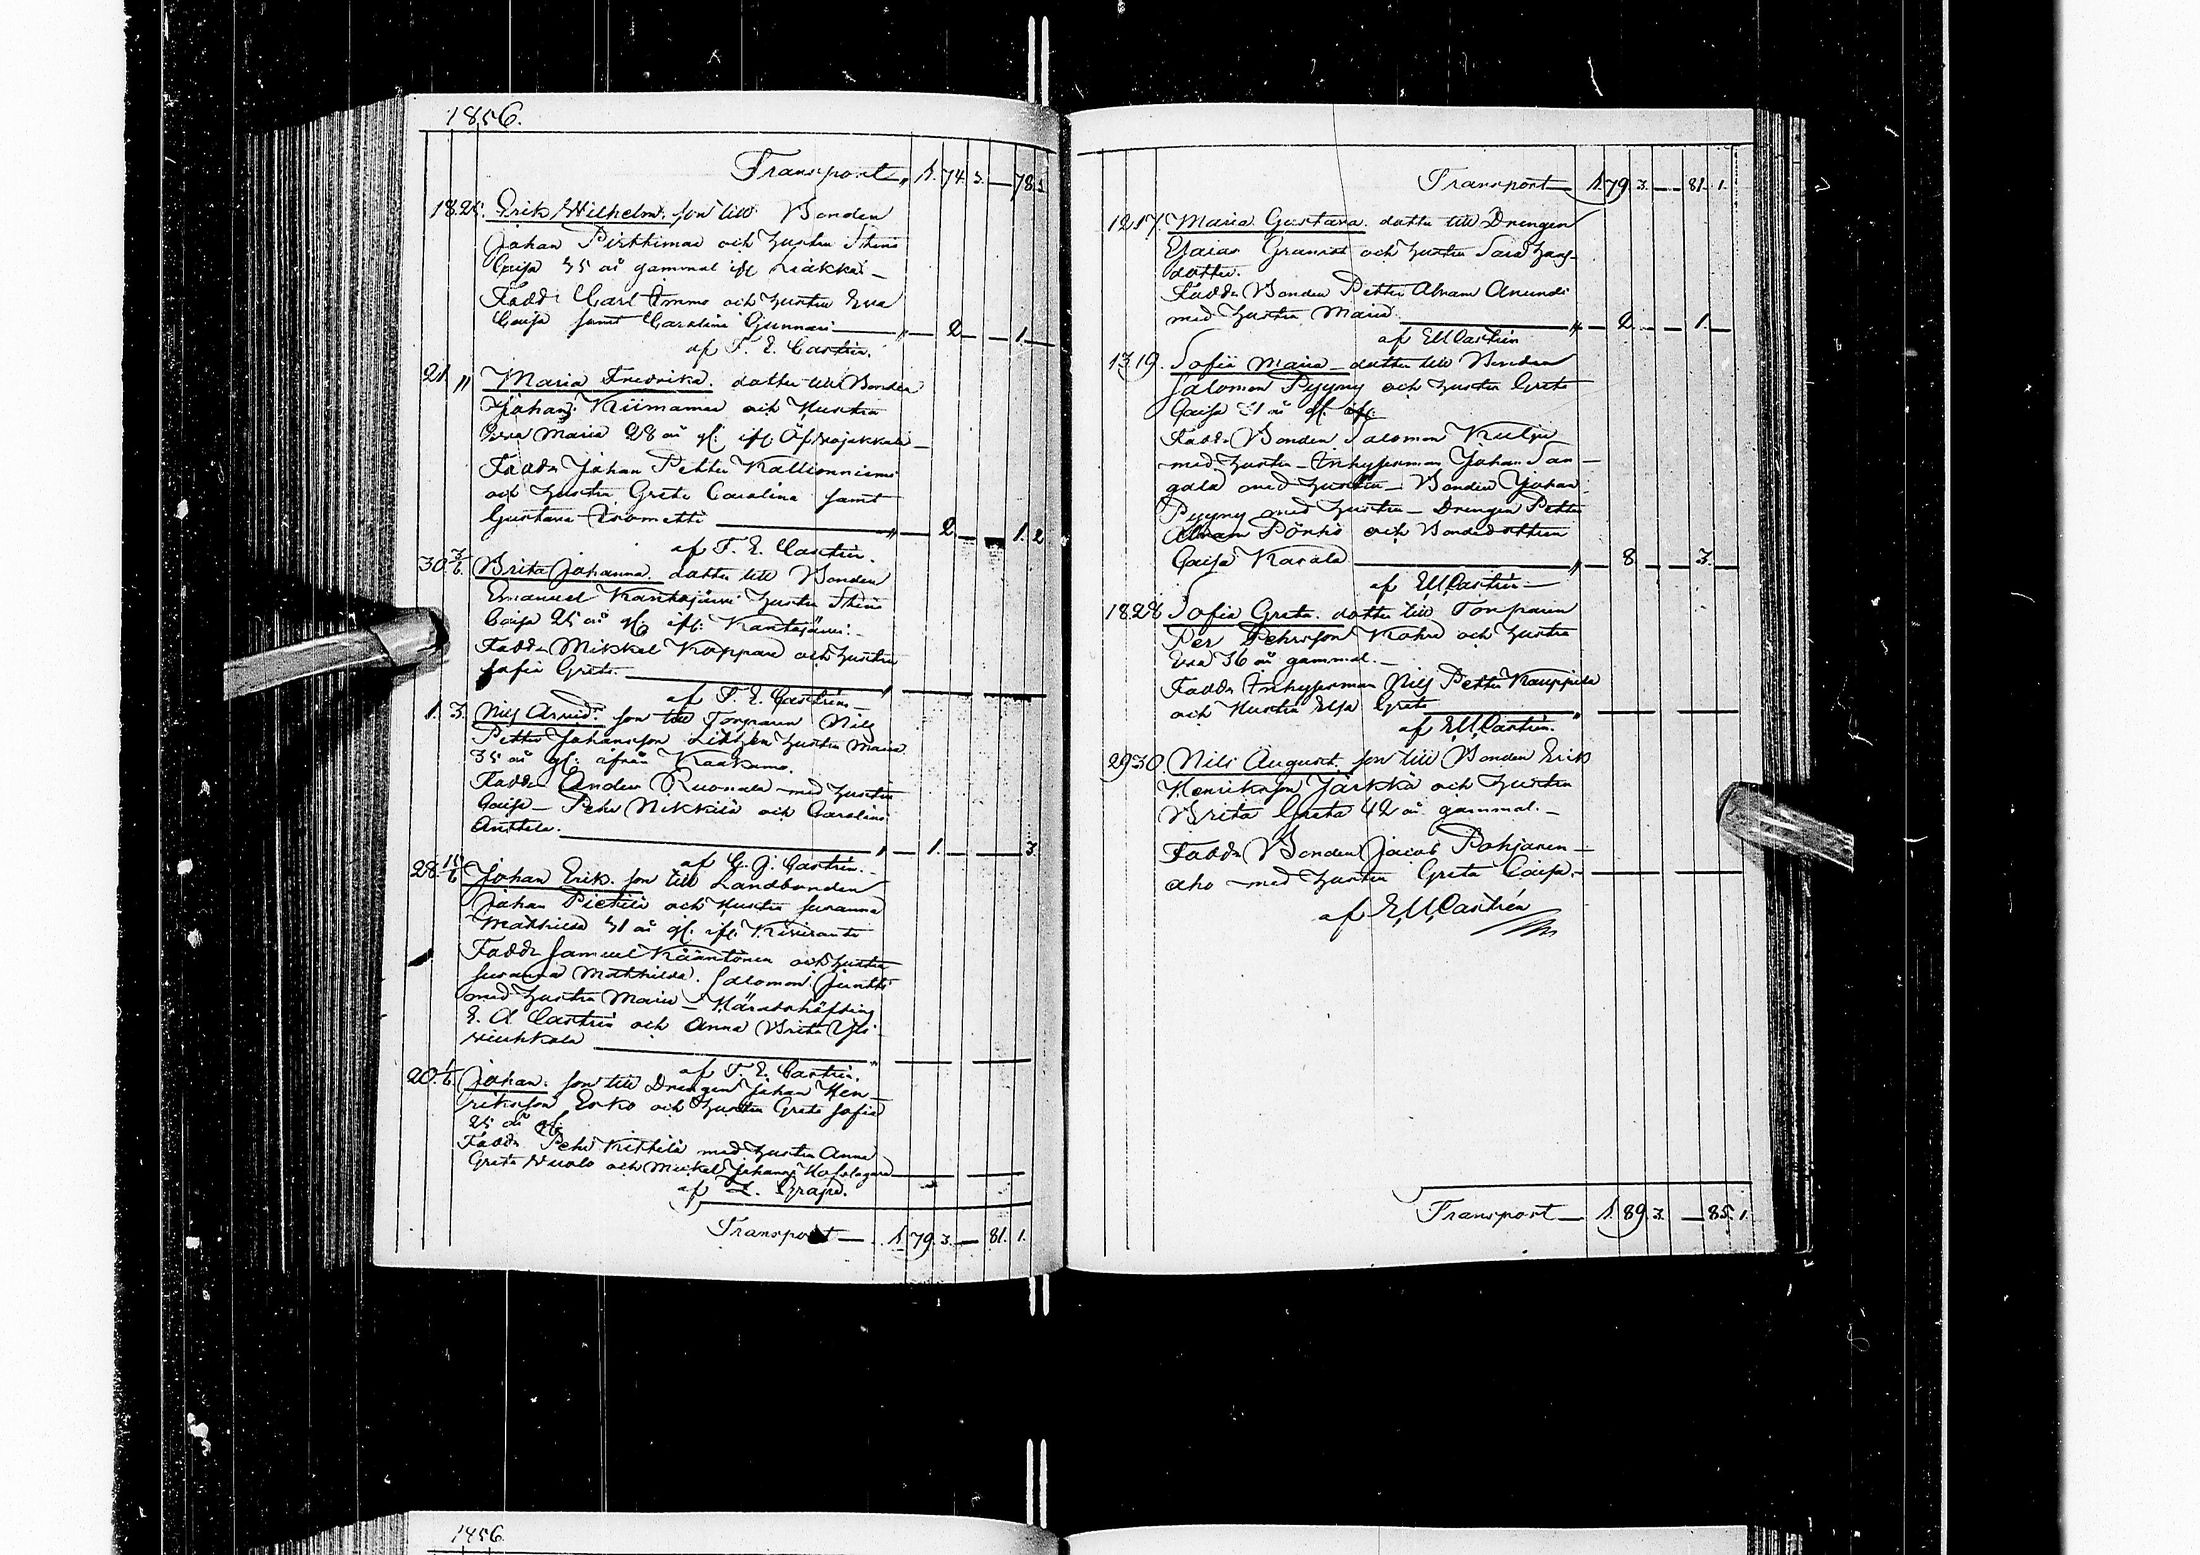 1856.
Transport „ 1. 74. 3. — 78. 3.
18. 25. Erik Wilhelm. son till Bonden
Johan Pirttimaa och hustru Stina
Caisa 35 år gammal ifr. Liakka —
Fadd: Carl Ammo och hustru Eva
Caisa samt Carolina Gunnari — „ — 2 — — 1. —
af F. E. Castrén.
21 „ Maria Fredrika. dotter till Bonden
Johan Kiimamaa och Hustru
Eva Maria 28 år gl: ifr.
Fadd: Johan Petter Kallionniemi
och hustru Greta Carolina samt
Gustava — „ — 2 — — 1. 2
af F. E. Castrén.
30. 3/6. Brita Johanna. dotter till Bonden
Emanuel Kantojärvi hustru Stina
Caisa 25 år gl: ifr: Kantojärvi. —
Fadd: Mikkel Koppara och hustru
Sofia Greta. — „ — — — —
af F. E. Castrén —
1. 3. Nils Arvid. son till Torparen Nils
Petter Johansson hustru Maria
35 år gl: ifrån Kaakamo.
Fadd: Anders Ruonala med hustru
Caisa — Pehr Nikkilä och Carolina
Anttila. — „ — 1. — — 3.
af G. J. Castrén. —
28. 15/6 Johan Erik. son till Landbonden
Johan Pietilä och Hustru Susanna
Mathilda 31 år gl. ifr. Kiviranta
Fadd: Samuel Kääntönen och hustru
Susanna Mathilda. Salomon Juntti
med hustru Maria — Häradshöfding
E. A. Castrén och Anna Brita Yli-
— „ — — — —
af F. E. Castrén.
20. 1/6 Johan. son till Drengen Johan Hen-
riksson Erko och hustru Greta Sofia
25 år gl.
Fadd: Pehr Kittilä med hustru Anna
Greta Nuolo och Mickel Johansson
af I. Grape.
Transport — 1. 79. 3. — 81. 1.
Transport — 1. 79. 3. — 81. 1.
12. 17. Maria Gustava. dotter till Drengen
Esaias Granroth och hustru Sara Hans-
dotter.
Fadd: Bonden Petter Abram Anundi
med hustru Maria — „ — 2. — — 1. —
af E U Castrén
13. 19. Sofia Maria — dotter till Bonden
Salomon Pyyny och hustru Greta
Caisa 31 år gl. ifr.
Fadd: Bonden Salomon Kulju
med hustru — Inhysesman Johan San-
gala med hustru — Bonden Johan
Pyyny med hustru — Drengen Petter
Abram Pörhö och Bondedottren
Caisa Karala — „ — 8. — — 3. —
af E U Castrén —
18. 28 Sofia Greta. dotter till Torparen
Per Pehrsson Kohu och hustru
Eva 36 år gammal. —
Fadd: Inhysesman Nils Petter Kauppila
och Hustru Elsa Greta — „ — — — —
af E. U. Castrén.
29. 30. Nils August. son till Bonden Erik
Henriksson Järkkä och hustru
Brita Greta 42 år gammal. —
Fadd: Bonden Jacob Pohjanen —
aho — med hustru Greta Caisa. — — — —
af E. U. Castrén
Transport — 1. 89. 3. — 85. 1.
1856